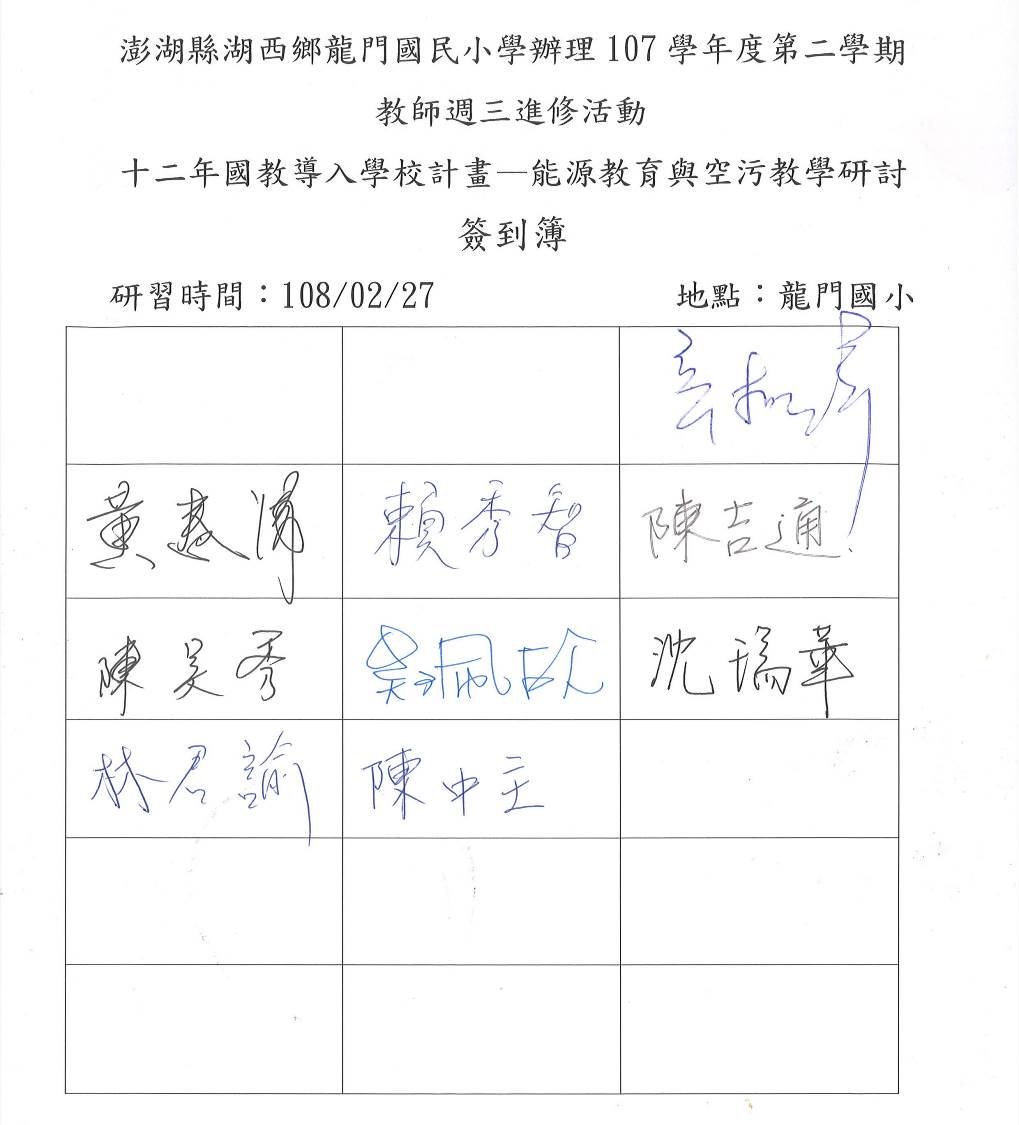 澎湖縣湖西鄉龍門國民小學辦理107學年度第二學期
教師週三進修活動
十二年國教導入學校計畫—能源教育與空污教學研討
簽到簿
研習時間：108/02/27 地點：龍門國小
黃 賴秀智 陳吉通
陳昊秀 吳佩 沈瑞華
林君諭 陳中主